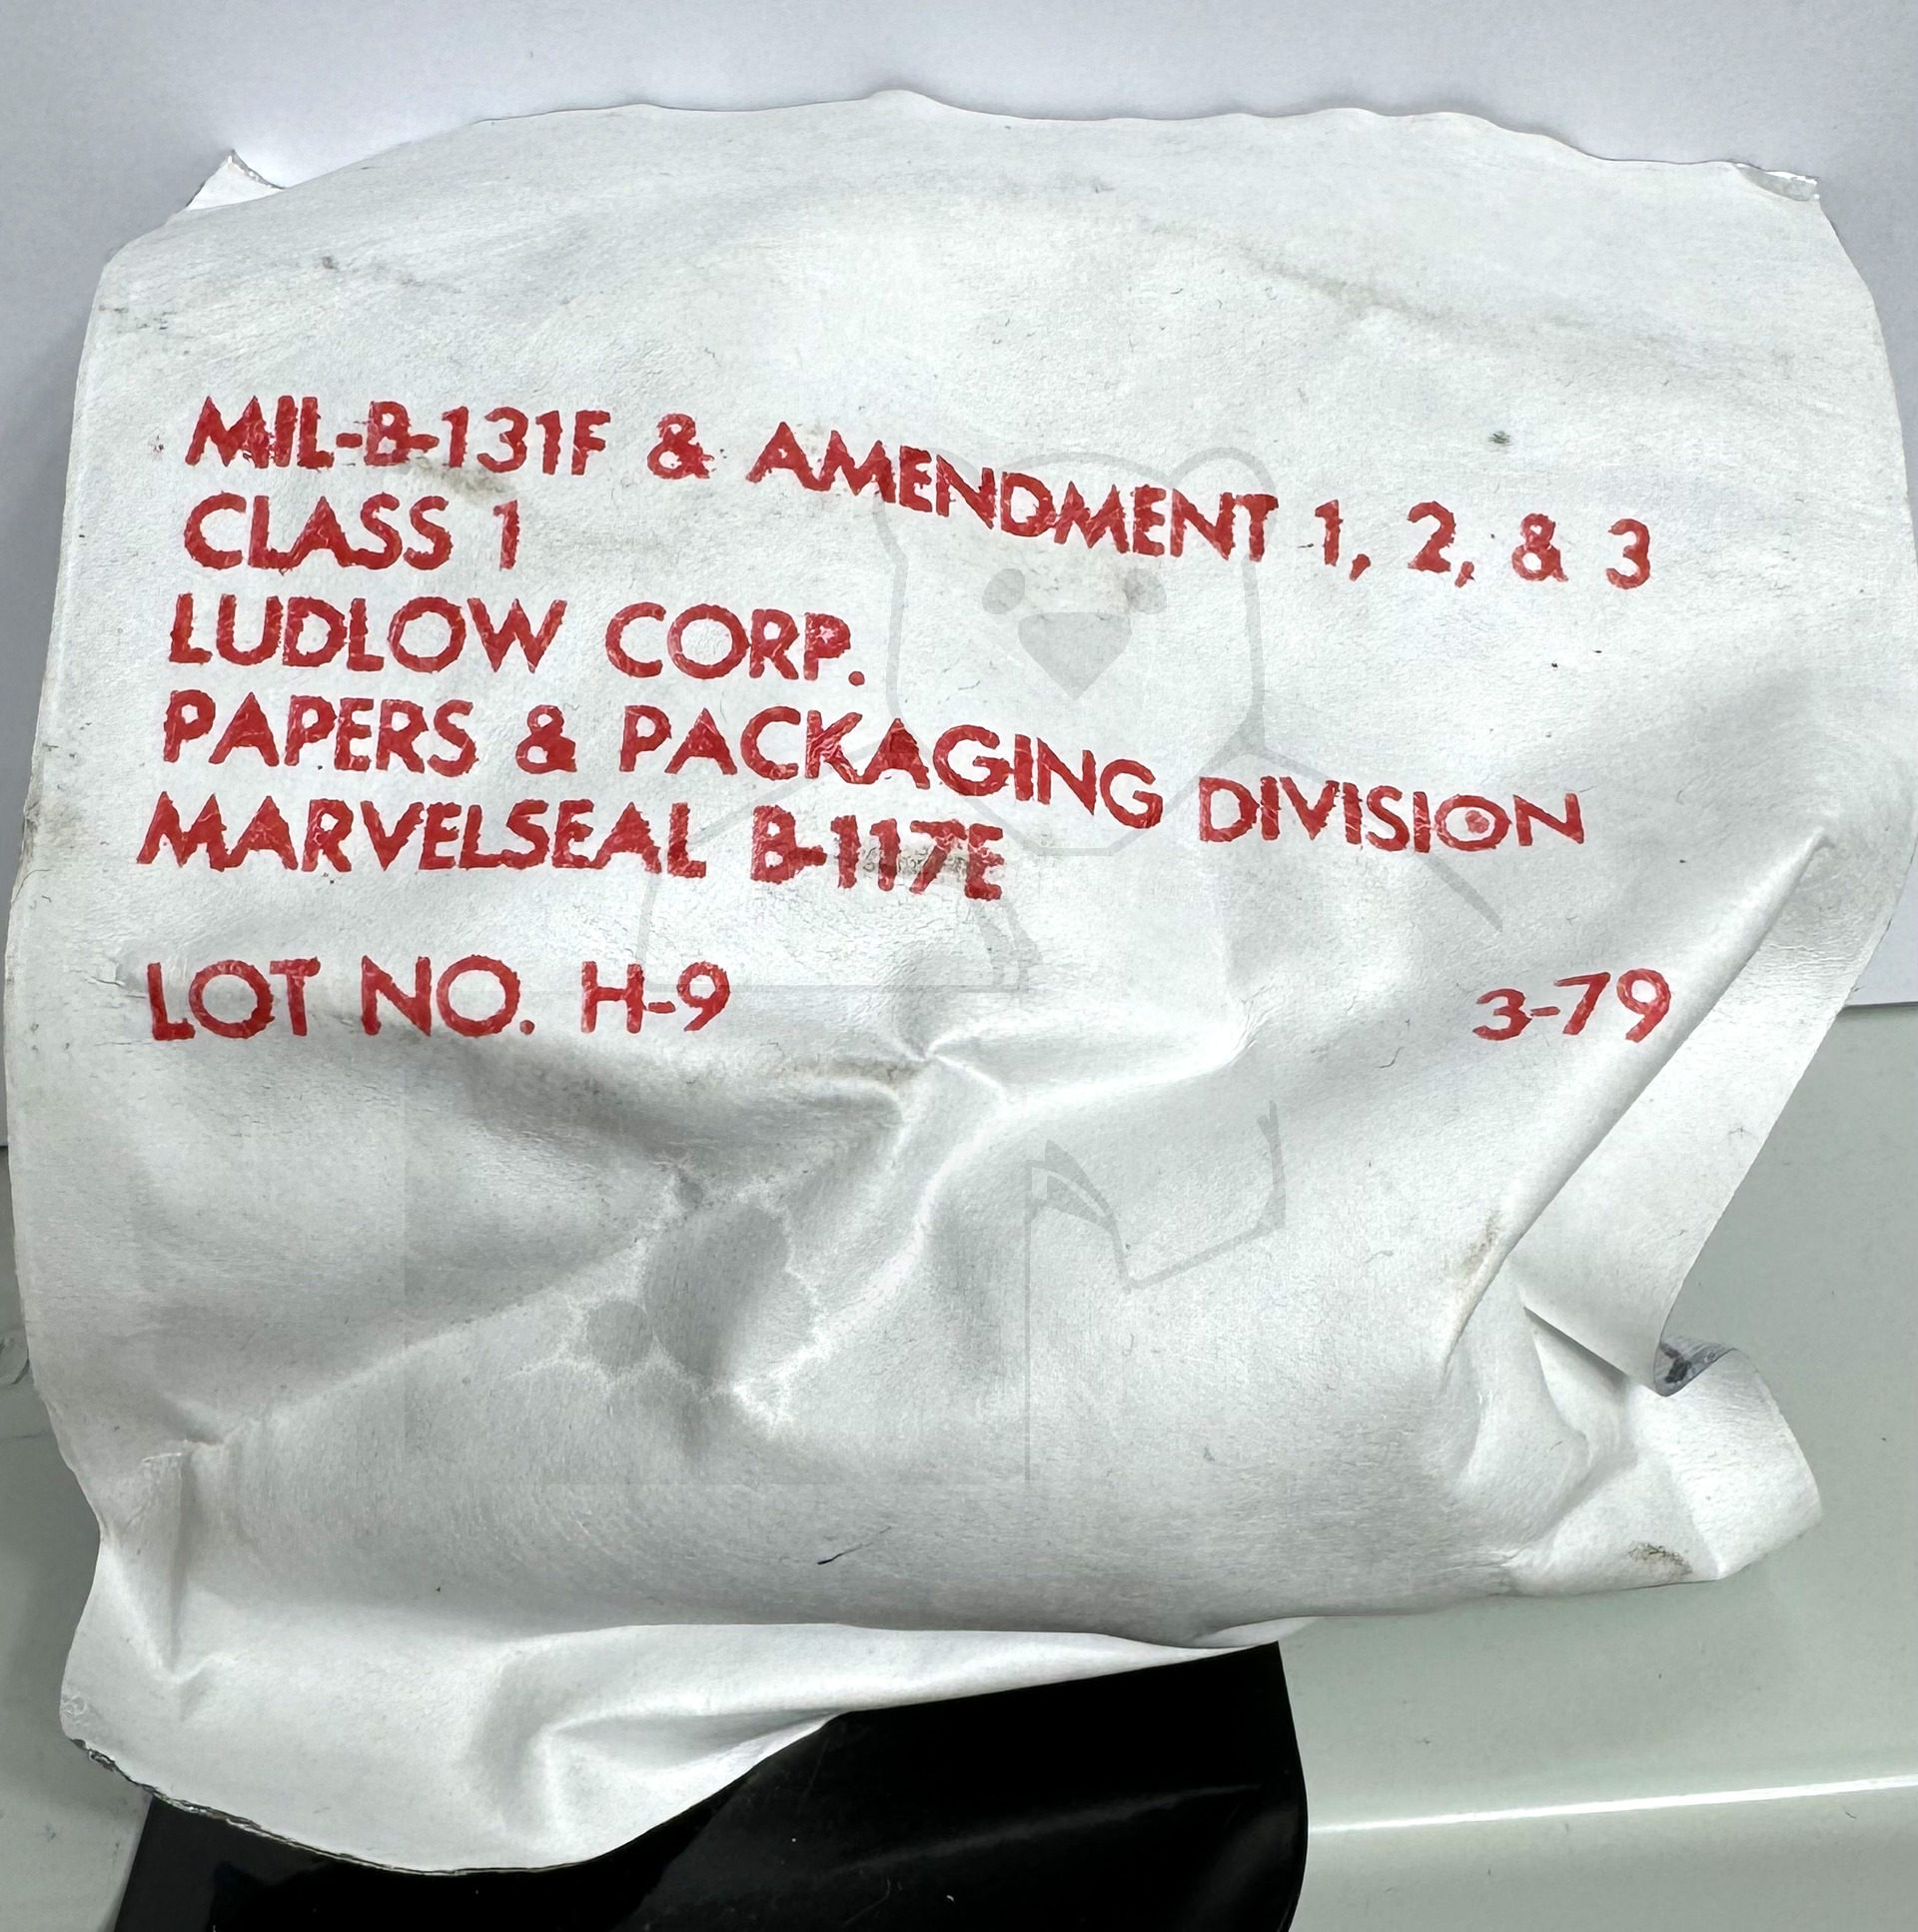 MIL-B-131F & AMENDMENT 1, 2, & 3
CLASS 1
LUDLOW CORP.
PAPERS & PACKAGING DIVISION
MARVELSEAL B-117E
LOT NO. H-9 3-79